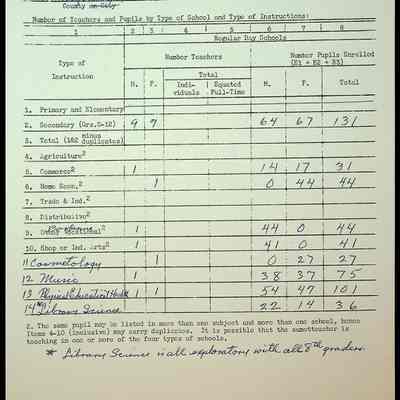 County or City
Number of Teachers and Pupils by Type of School and Type of Instructions:
1 2 3 4 5 6 7 8
Regular Day Schools
Type of Instruction Number Teachers Number Pupils Enrolled (E1 + E2 + E3)
Total
M. F. Indi-viduals Equated Full-Time M. F. Total
1. Primary and Elementary
2. Secondary (Grs.8-12) 9 7 64 67 131
3. Total (1&2 minus duplicates)
4. Agriculture2
5. Commerce2 1 14 17 31
6. Home Econ.2 1 0 44 44
7. Trade & Ind.2
8. Distributive2
9. Other Vocational2 1 44 0 44
10. Shop or Ind. Arts2 1 41 0 41
11 Cosmetology 1 0 27 27
12 Music 1 38 37 75
13 Physical Education/Health 1 1 54 47 101
14 *Library Science 22 14 36
2. The same pupil may be listed in more than one subject and more than one school, hence
Items 4-10 (inclusive) may carry duplicates. It is possible that the same teacher is
teaching in one or more of the four types of schools.
* Library Science is all exploratory with all 8th graders.